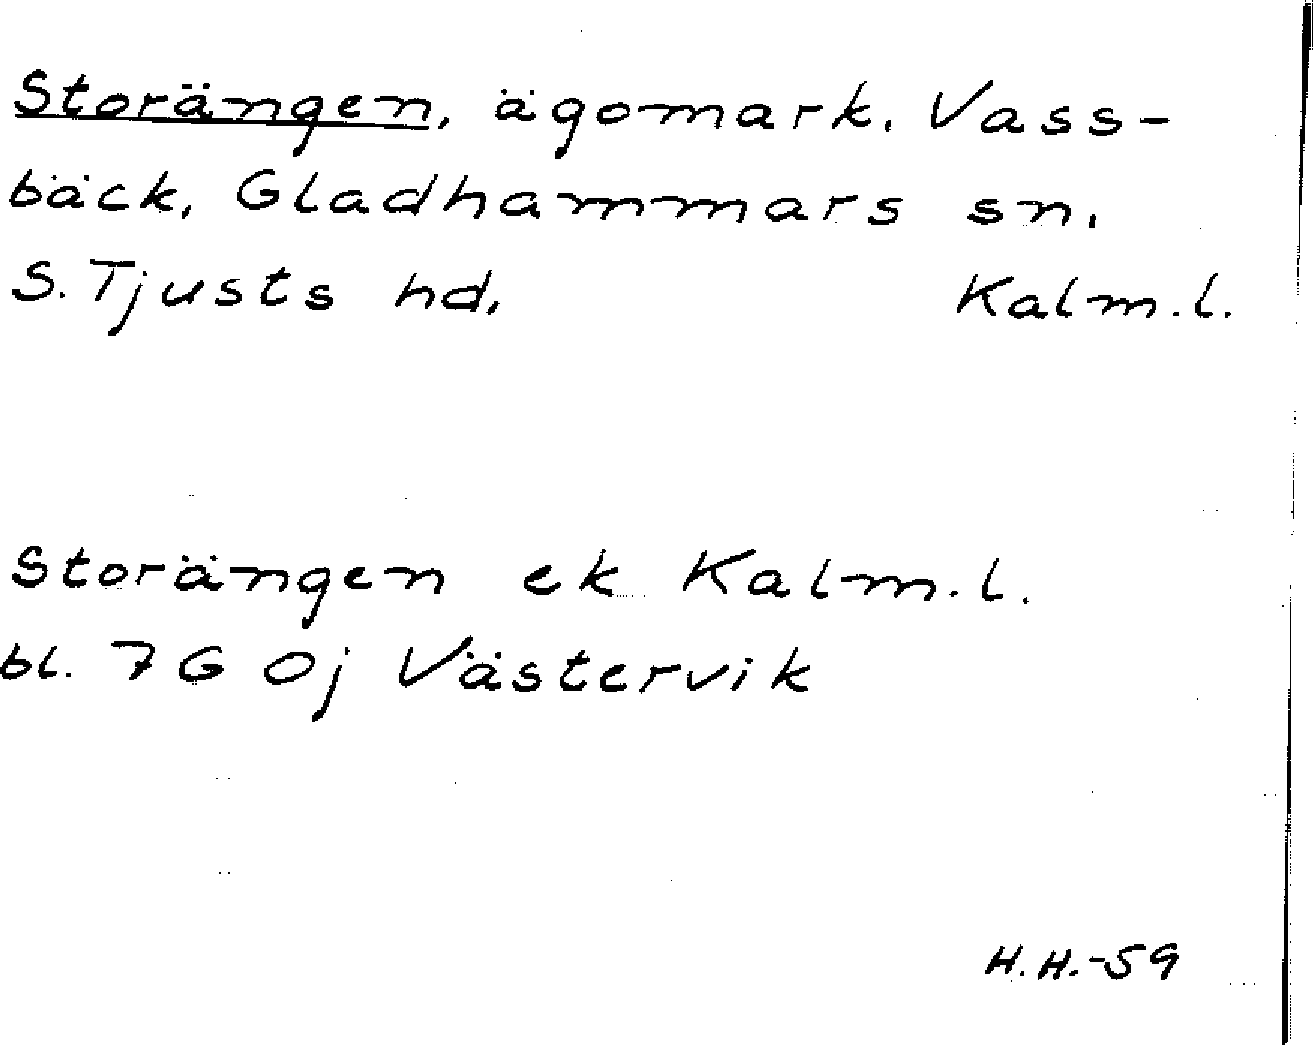 Storängen, ägomark, Vass-
bäck, Gladhammars sn,
S. Tjusts hd, Kalm.l.
Storängen ek Kalm.l.
bl. 7G 0j Västervik
H.H.-59